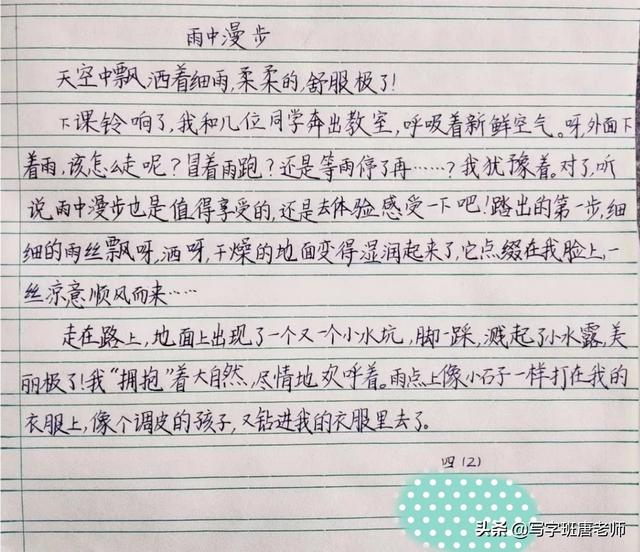 雨中漫步
天空中飘洒着细雨,柔柔的,舒服极了!
下课铃响了,我和几位同学奔出教室,呼吸着新鲜空气。呀,外面下
着雨,该怎么走呢?冒着雨跑?还是等雨停了再……?我犹豫着。对了,听
说雨中漫步也是值得享受的,还是去体验感受一下吧!踏出的第一步,细
细的雨丝飘呀,洒呀,干燥的地面变得湿润起来了,它点缀在我脸上,一
丝凉意顺风而来……
走在路上,地面上出现了一个又一个小水坑,脚一踩,溅起了小水露,美
丽极了!我“拥抱”着大自然,尽情地欢呼着。雨点上像小石子一样打在我的
衣服上,像个调皮的孩子,又钻进我的衣服里去了。
四(2)
头条 @写字班唐老师